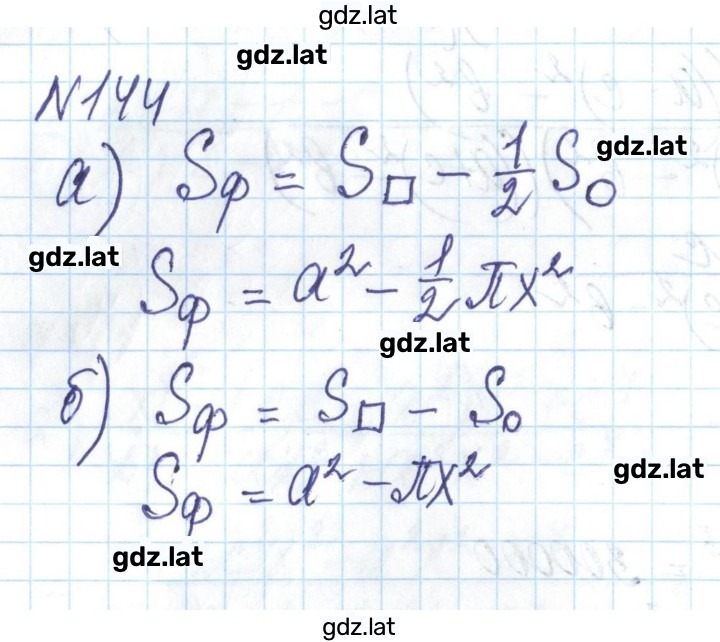 gdz.lat
gdz.lat
N144
а) Sф = S□ - 1/2 S○ gdz.lat
gdz.lat
Sф = a² - 1/2 πx²
gdz.lat
б) Sф = S□ - S○
Sф = a² - πx² gdz.lat
gdz.lat
gdz.lat